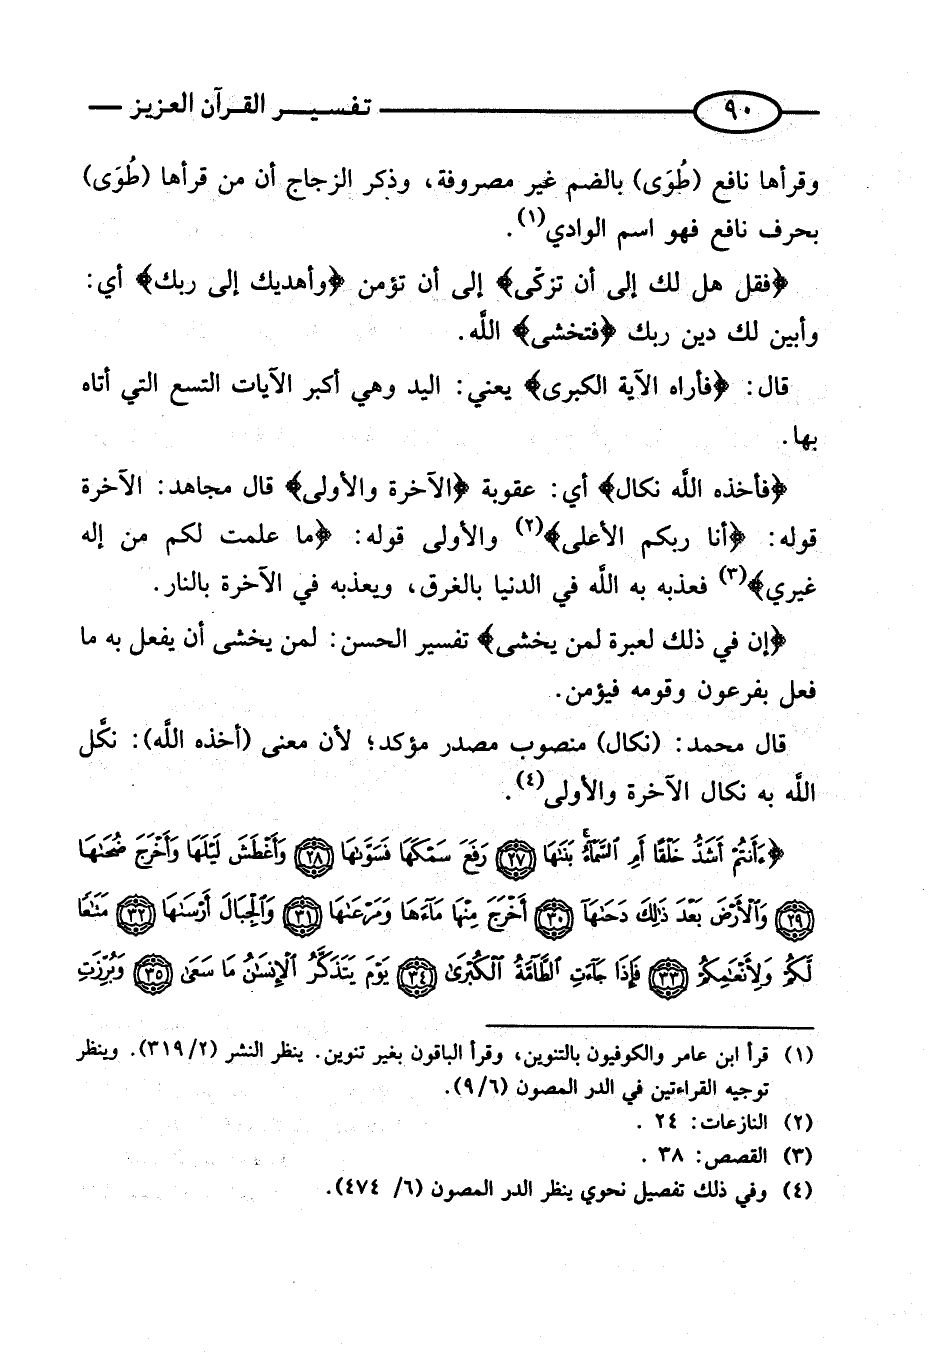 ٩٠ تفسير القرآن العزيز
وقرأها نافع (طُوَى) بالضم غير مصروفة، وذكر الزجاج أن من قرأها (طُوَى)
بحرف نافع فهو اسم الوادي(١).
﴿فقل هل لك إلى أن تزكّى﴾ إلى أن تؤمن ﴿وأهديك إلى ربك﴾ أي:
وأبين لك دين ربك ﴿فتخشى﴾ اللَّه.
قال: ﴿فأراه الآية الكبرى﴾ يعني: اليد وهي أكبر الآيات التسع التي أتاه
بها.
﴿فأخذه اللَّه نكال﴾ أي: عقوبة ﴿الآخرة والأولى﴾ قال مجاهد: الآخرة
قوله: ﴿أنا ربكم الأعلى﴾(٢) والأولى قوله: ﴿ما علمت لكم من إله
غيري﴾(٣) فعذبه به اللَّه في الدنيا بالغرق، ويعذبه في الآخرة بالنار.
﴿إن في ذلك لعبرة لمن يخشى﴾ تفسير الحسن: لمن يخشى أن يفعل به ما
فعل بفرعون وقومه فيؤمن.
قال محمد: (نكال) منصوب مصدر مؤكد؛ لأن معنى (أخذه اللَّه): نكَّل
اللَّه به نكال الآخرة والأولى(٤).
﴿ءَأَنتُمْ أَشَدُّ خَلْقًا أَمِ السَّمَاءُ بَنَاهَا ٢٧ رَفَعَ سَمْكَهَا فَسَوَّاهَا ٢٨ وَأَغْطَشَ لَيْلَهَا وَأَخْرَجَ ضُحَاهَا
٢٩ وَالْأَرْضَ بَعْدَ ذَٰلِكَ دَحَاهَا ٣٠ أَخْرَجَ مِنْهَا مَاءَهَا وَمَرْعَاهَا ٣١ وَالْجِبَالَ أَرْسَاهَا ٣٢ مَتَاعًا
لَّكُمْ وَلِأَنْعَامِكُمْ ٣٣ فَإِذَا جَاءَتِ الطَّامَّةُ الْكُبْرَىٰ ٣٤ يَوْمَ يَتَذَكَّرُ الْإِنسَانُ مَا سَعَىٰ ٣٥ وَبُرِّزَتِ
(١) قرأ ابن عامر والكوفيون بالتنوين، وقرأ الباقون بغير تنوين. ينظر النشر (٣١٩/٢). وينظر
توجيه القراءتين في الدر المصون (٩/٦).
(٢) النازعات: ٢٤ .
(٣) القصص: ٣٨ .
(٤) وفي ذلك تفصيل نحوي ينظر الدر المصون (٦/ ٤٧٤).